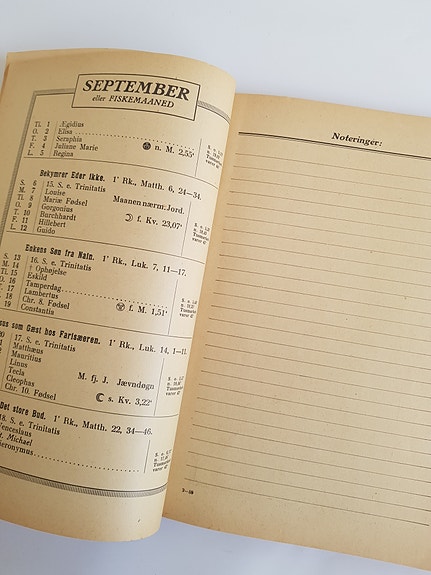 SEPTEMBER
eller FISKEMAANED
Ti. 1 Ægidius
O. 2 Elisa
T. 3 Seraphia
F. 4 Juliane Marie n. M. 2,55'
L. 5 Regina
Bekymrer Eder ikke. 1' Rk., Matth. 6, 24—34.
S. 6 15. S. e. Trinitatis
M. 7 Louise Maanen nærm. Jord.
Ti. 8 Mariæ Fødsel
O. 9 Gorgonius
T. 10 Burchhardt f. Kv. 23,07'
F. 11 Hillebert
L. 12 Guido
Enkens Søn fra Nain. 1' Rk., Luk. 7, 11—17.
S. 13 16. S. e. Trinitatis
M. 14 † Ophøjelse
Ti. 15 Eskild
O. 16 Tamperdag
17 Lambertus
18 Chr. 8. Fødsel f. M. 1,51'
19 Constantia
sus som Gæst hos Farisæeren. 1' Rk., Luk. 14, 1—11.
17. S. e. Trinitatis
Matthæus
Mauritius
Linus M. fj. J. Jævndøgn
Tecla
Cleophas s. Kv. 3,22'
Chr. 10. Fødsel
Det store Bud. 1' Rk., Matth. 22, 34—46.
18. S. e. Trinitatis
enceslaus
t. Michael
ieronymus
Noteringer: